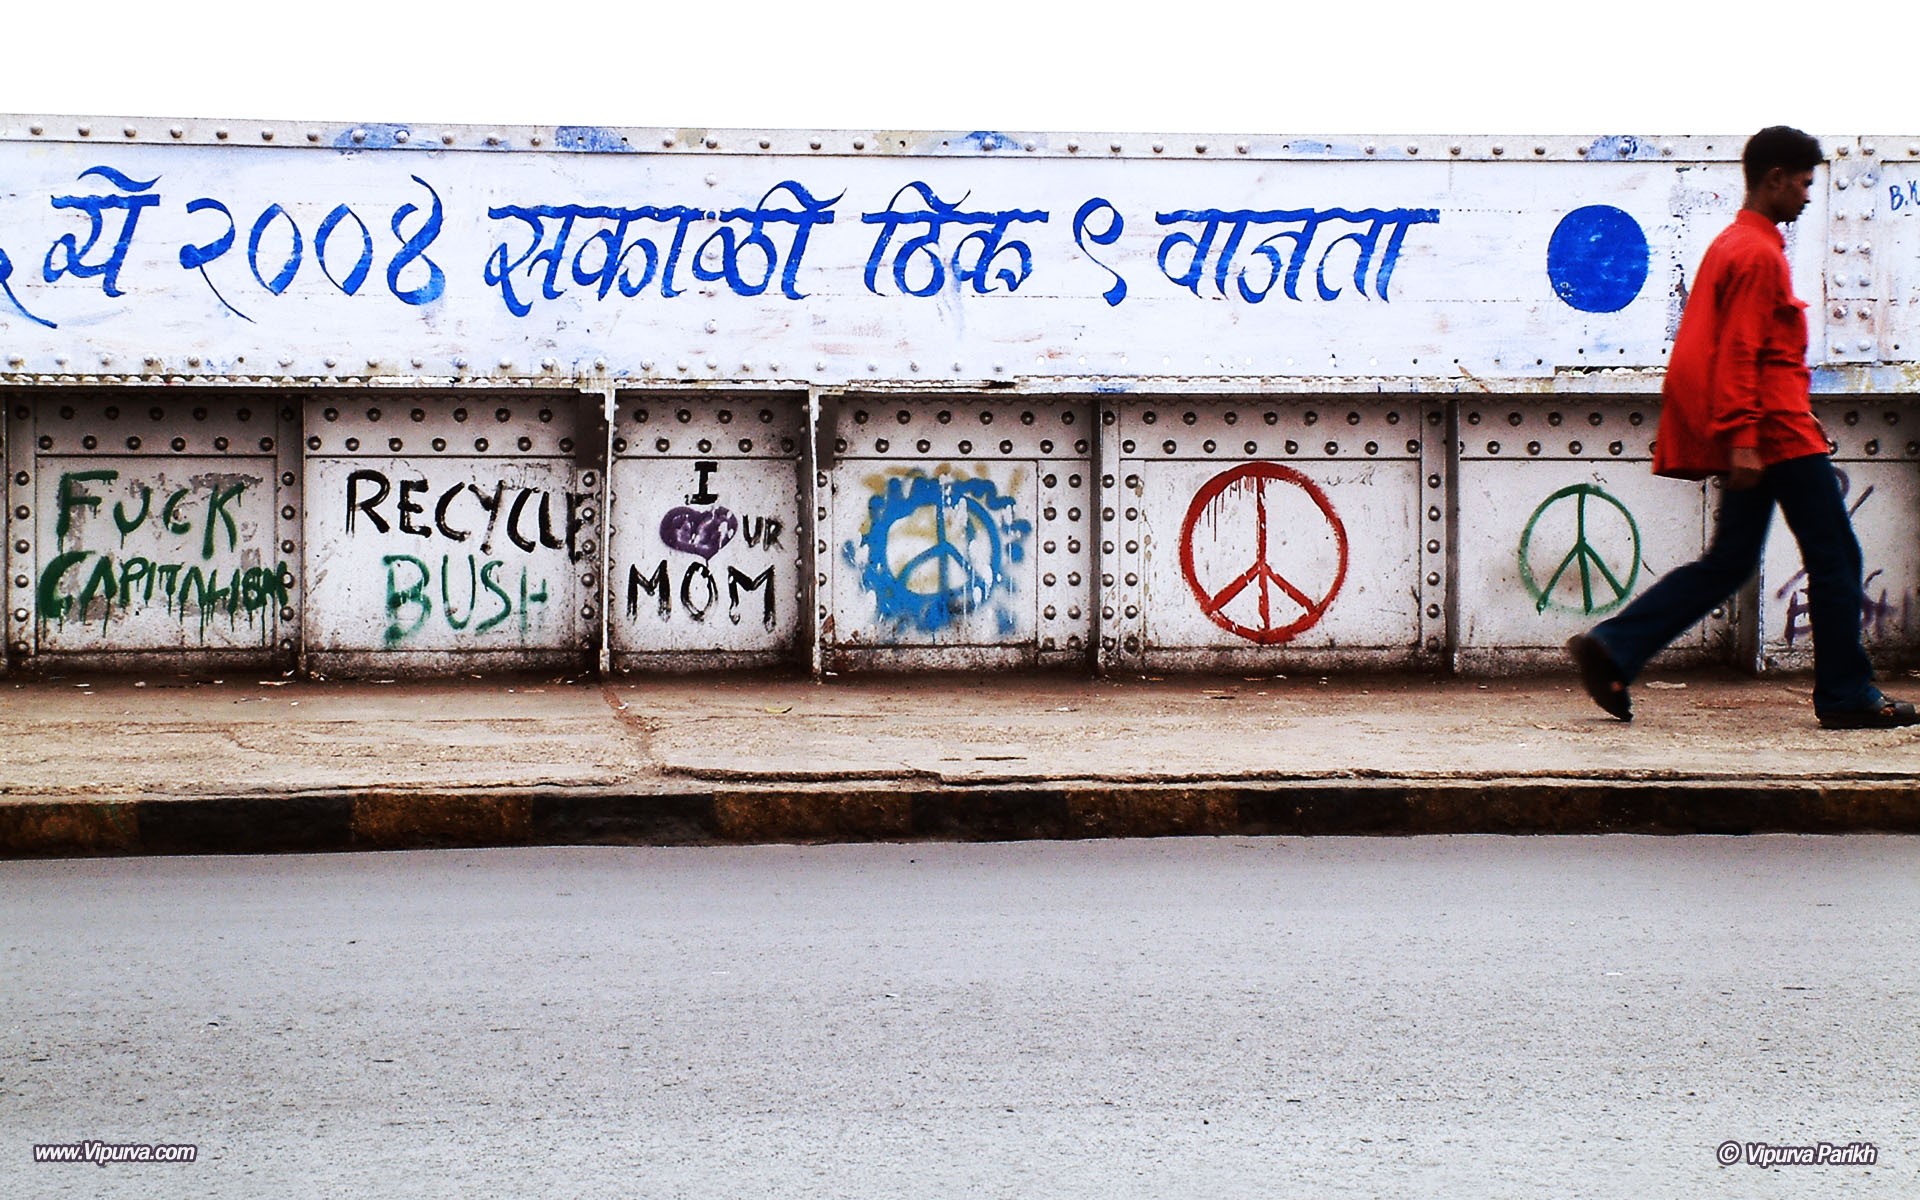 २००४ सकाळी ठिक ९ वाजता
FUCK
CAPITALISM
RECYCLE
BUSH
I
UR
MOM
www.Vipurva.com
© Vipurva Parikh